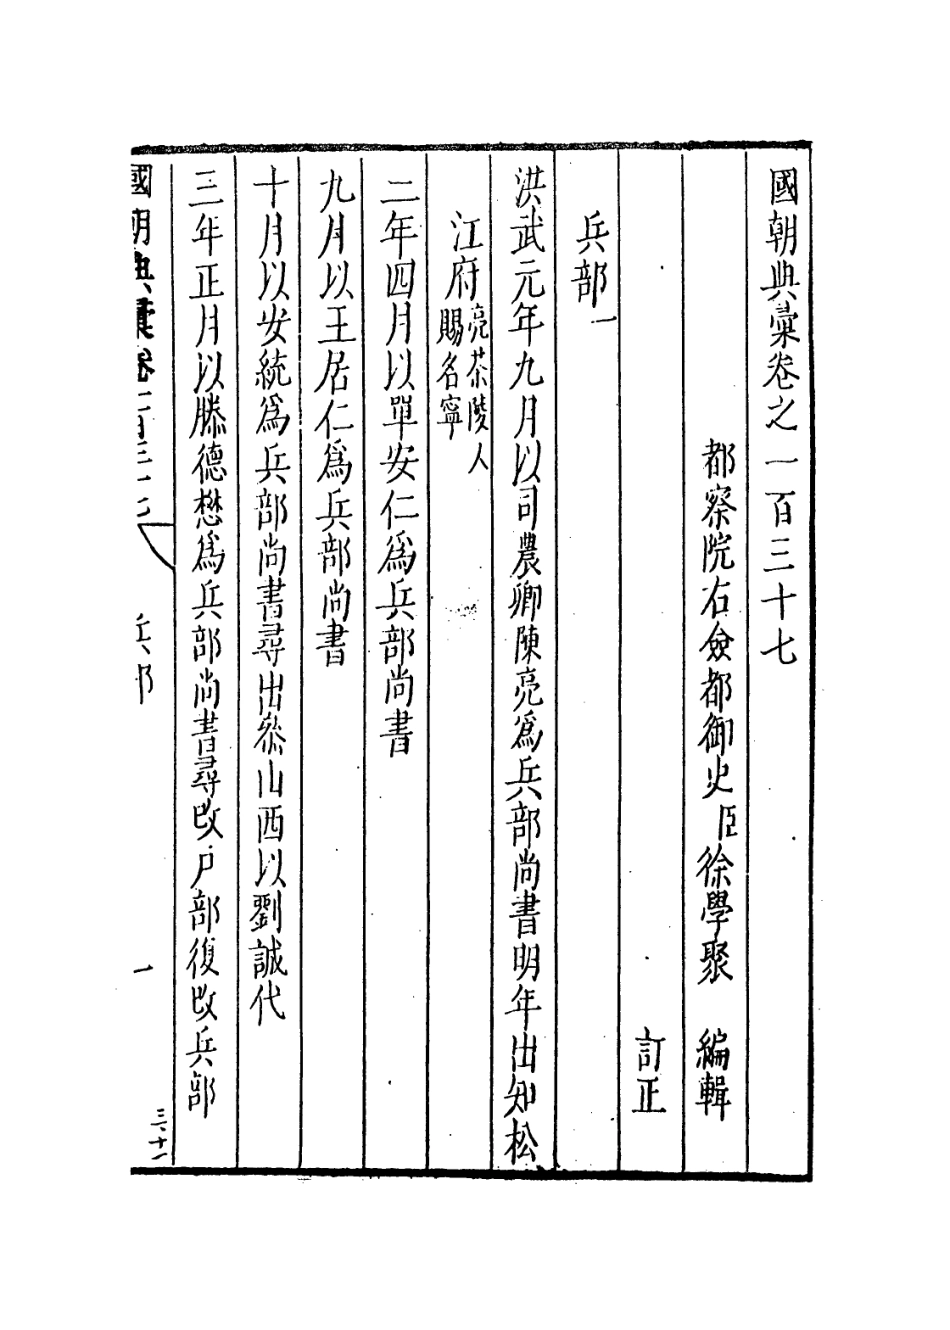 國朝典彙卷之一百三十七
都察院右僉都御史臣徐學聚　編輯
訂正
兵部一
洪武元年九月以司農卿陳亮爲兵部尚書明年出知松
江府亮茶陵人賜名寧
二年四月以單安仁爲兵部尚書
九月以王居仁爲兵部尚書
十月以安統爲兵部尚書尋出叅山西以劉誠代
三年正月以滕德懋爲兵部尚書尋改户部復改兵部
國朝典彙卷一百三十七　兵部　一
三、十一